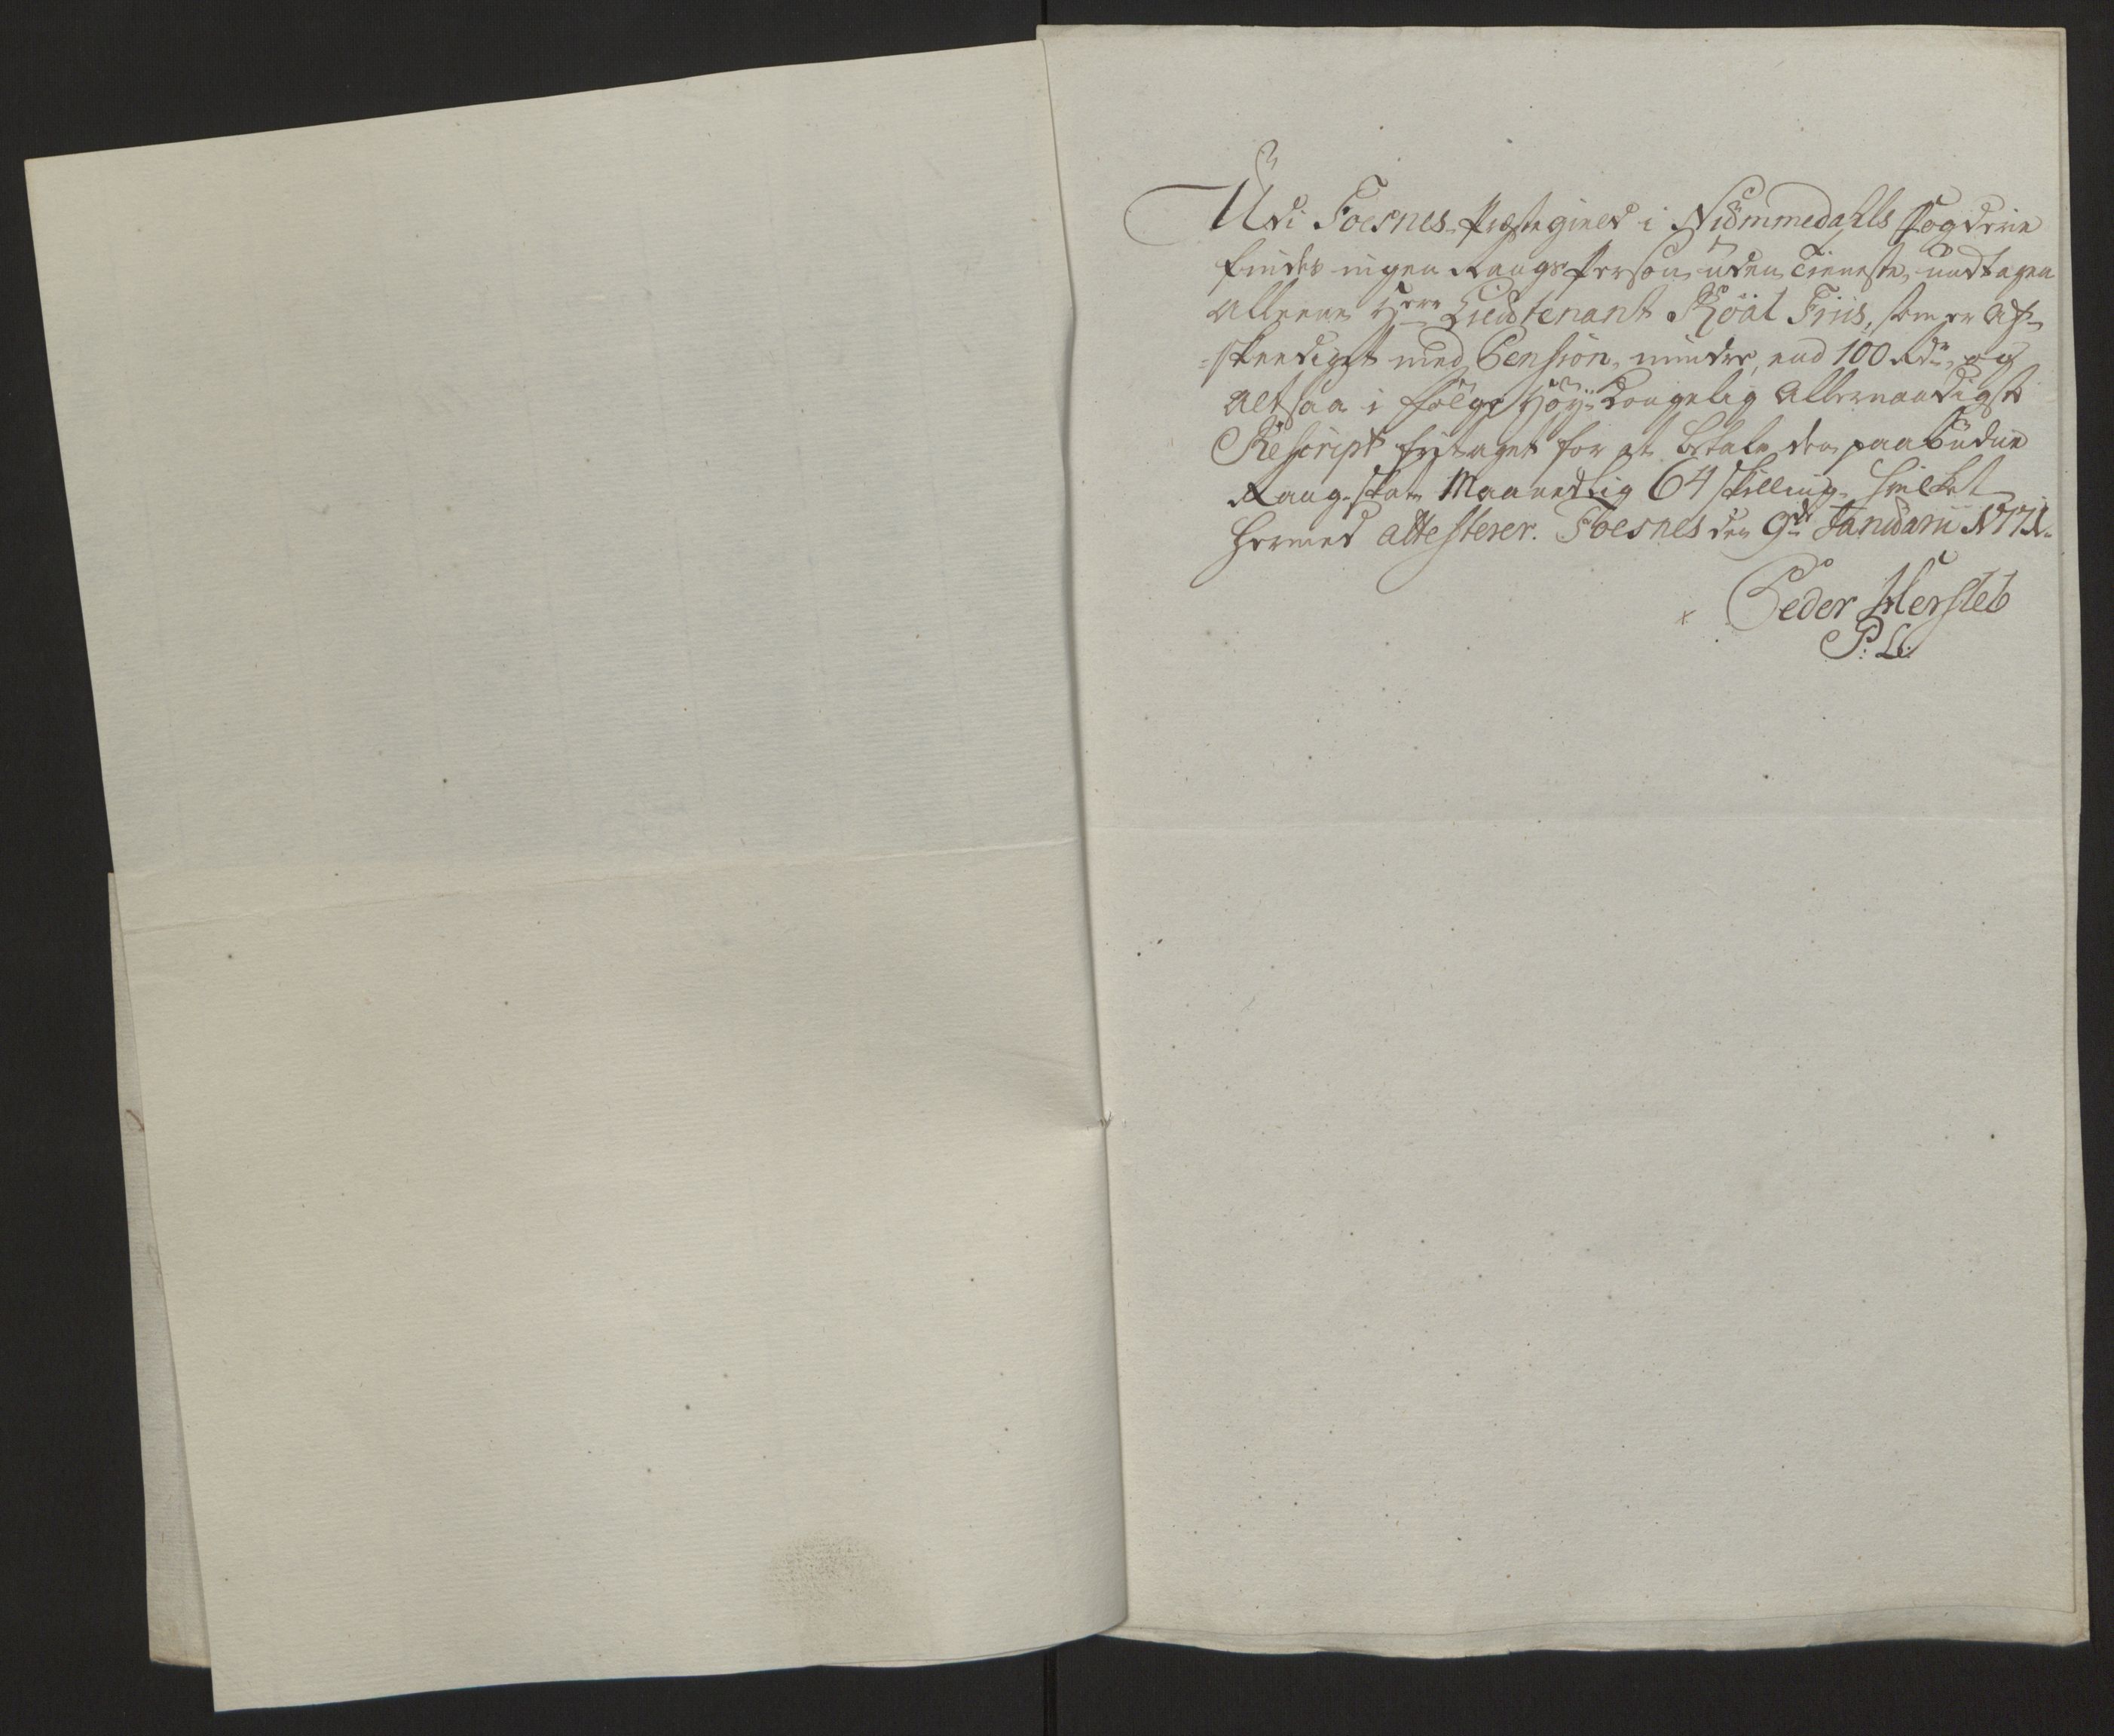 Udi Foesnes Præstegield i Nummedahls Fogderie
findes ingen Rangs Person uden Tieneste, undtagen
Alleene Herr Lieutenant Roäl Friis, som er af-
=skeediget med Pension, mindre, end 100 Rdr, og
altsaa i følge Høy Kongelig Allernaadigst
Rescript fritaget for at betale den paabudne
Rang-skat Maanedlig 64 skilling, hvilket
hermed attesterer. Foesnes den 9de Januarii 1771.
Peder Hersleb
P: L: